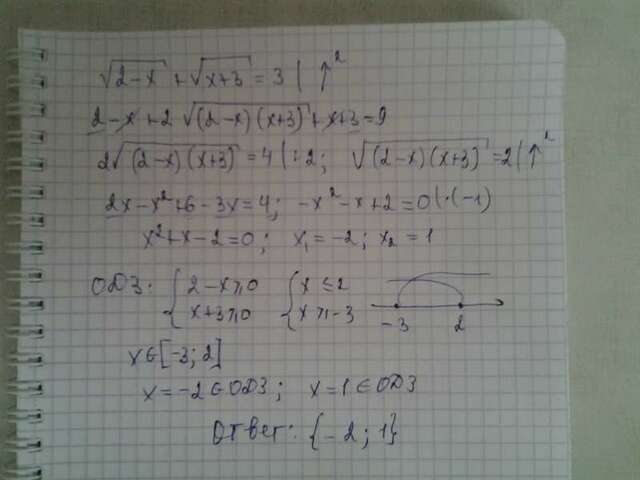 √(2-x) + √(x+3) = 3 | ↑²
2-x+2√((2-x)(x+3))+x+3=9
2√((2-x)(x+3)) = 4 | :2; √((2-x)(x+3)) = 2 | ↑²
2x-x²+6-3x=4; -x²-x+2=0 | ·(-1)
x²+x-2=0; x₁=-2; x₂=1
ОДЗ: { 2-x⩾0 { x⩽2
x+3⩾0 x⩾-3
-3 2
x∈[-3;2]
x=-2∈ОДЗ; x=1∈ОДЗ
Ответ: {-2; 1}